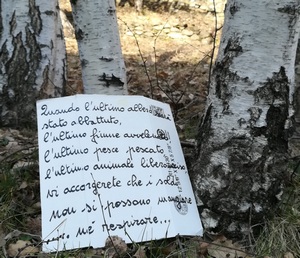 Quando l'ultimo albero sarà
stato abbattuto,
l'ultimo fiume avvelenato
l'ultimo pesce pescato
l'ultimo animale libero
vi accorgerete che i soldi
non si possono mangiare
..... né respirare...